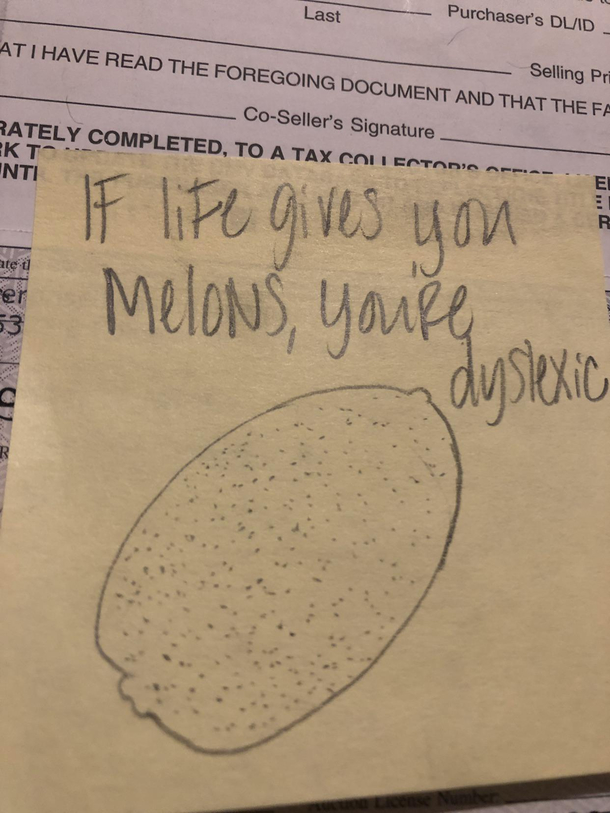 Last
Purchaser's DL/ID
Selling Pri
AT I HAVE READ THE FOREGOING DOCUMENT AND THAT THE FA
Co-Seller's Signature
RATELY COMPLETED, TO A TAX COLLECTOR'S OFFICE
IF liFe gives you
MeloNS, you're
dyslexic
Auction License Number: